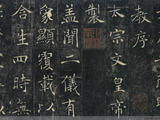 教序
太宗文皇帝
製
蓋聞二儀有
象顯覆載以
含生四時無